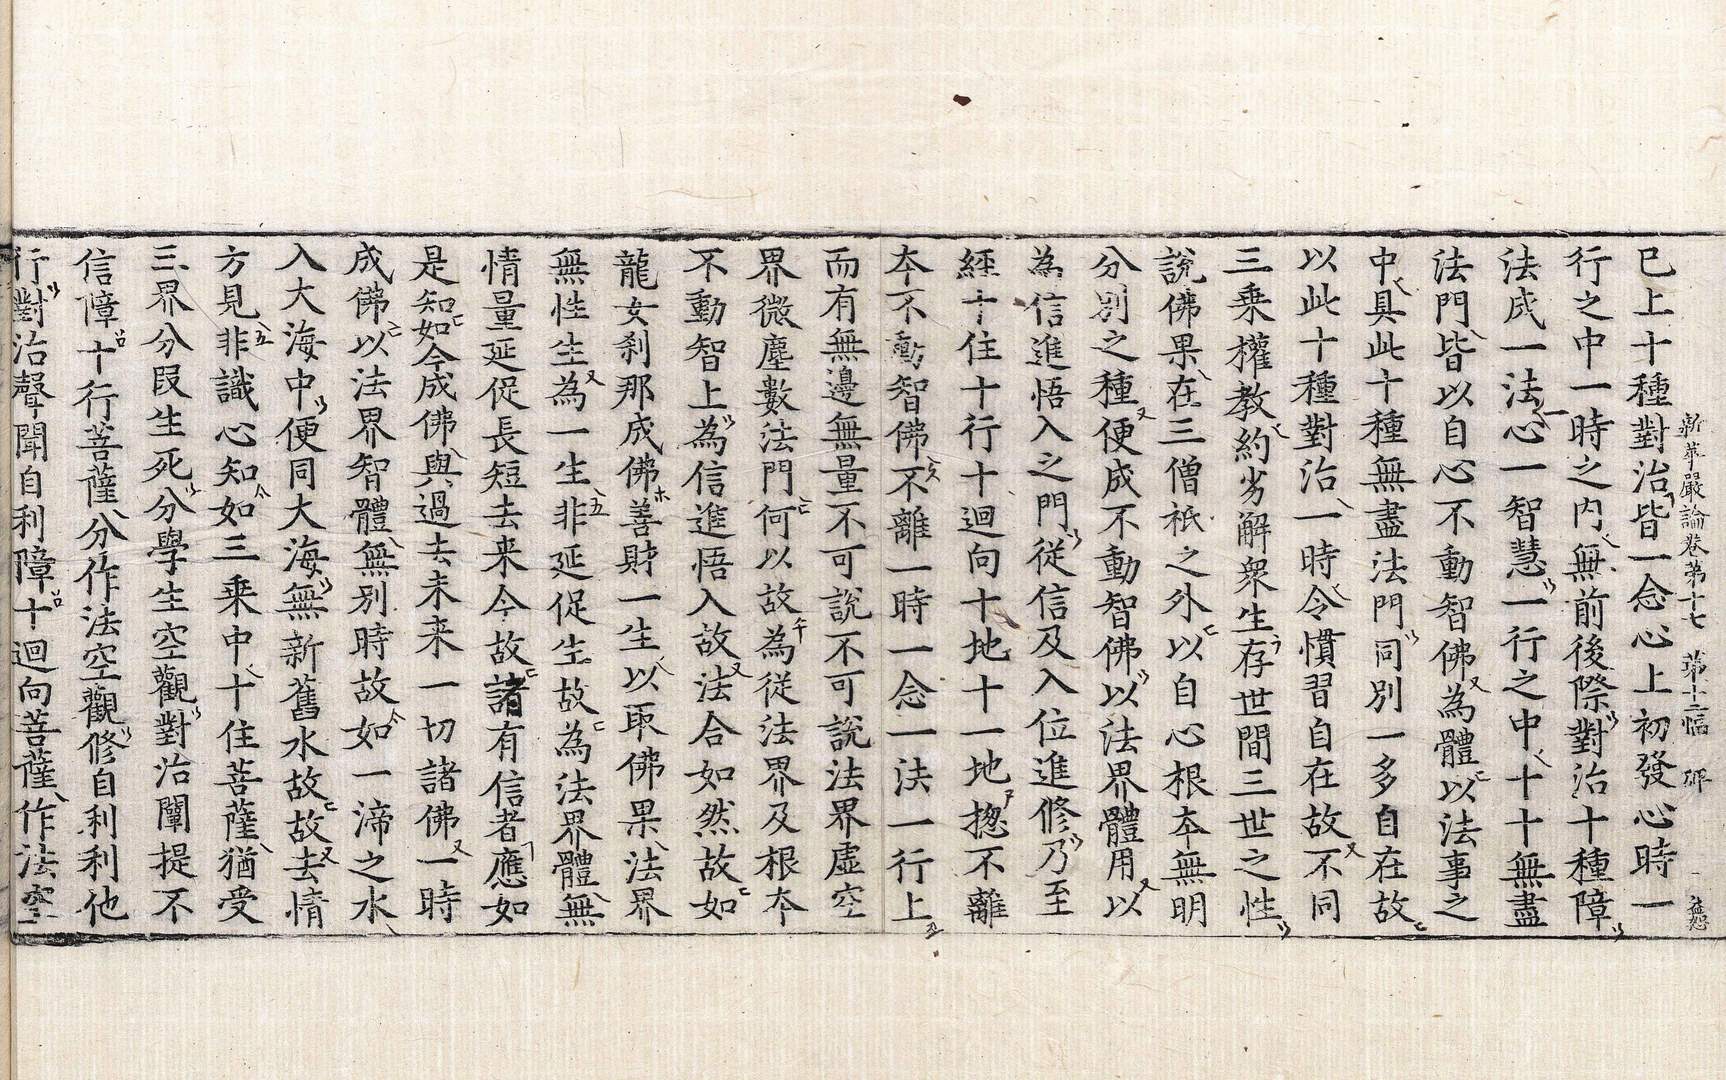 新華嚴論卷第十七 第十二幅
已上十種對治皆一念心上初發心時一
行之中一時之內無前後際對治十種障
法成一法心一智慧一行之中十十無盡
法門皆以自心不動智佛為體以法事之
中具此十種無盡法門同別一多自在故
以此十種對治一時令慣習自在故不同
三乘權教約劣解衆生存世間三世之性
說佛果在三僧祇之外以自心根夲無明
分別之種便成不動智佛以法界體用以
為信進悟入之門從信及入位進修乃至
經十住十行十迴向十地十一地揔不離
夲不動智佛不離一時一念一法一行上
而有無邊無量不可說不可說法界虛空
界微塵數法門何以故為從法界及根夲
不動智上為信進悟入故法合如然故如
龍女刹那成佛善財一生以取佛果法界
無性生為一生非延促生故為法界體無
情量延促長短去来今故諸有信者應如
是知如今成佛與過去未来一切諸佛一時
成佛以法界智體無別時故如一渧之水
入大海中便同大海無新舊水故故去情
方見非識心知如三乘中十住菩薩猶受
三界分段生死分學生空觀對治闡提不
信障十行菩薩分作法空觀修自利利他
行對治聲聞自利障十迴向菩薩作法空